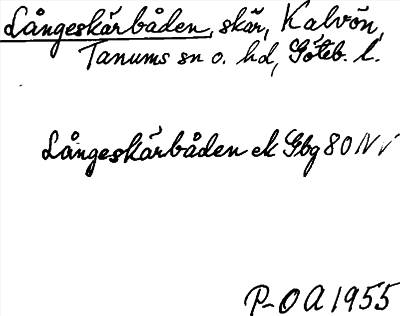 Långeskärbåden, skär, Kalvön,
Tanums sn o. hd, Göteb. l.
Långeskärbåden ek Gbg 80 NV
P-O A 1955